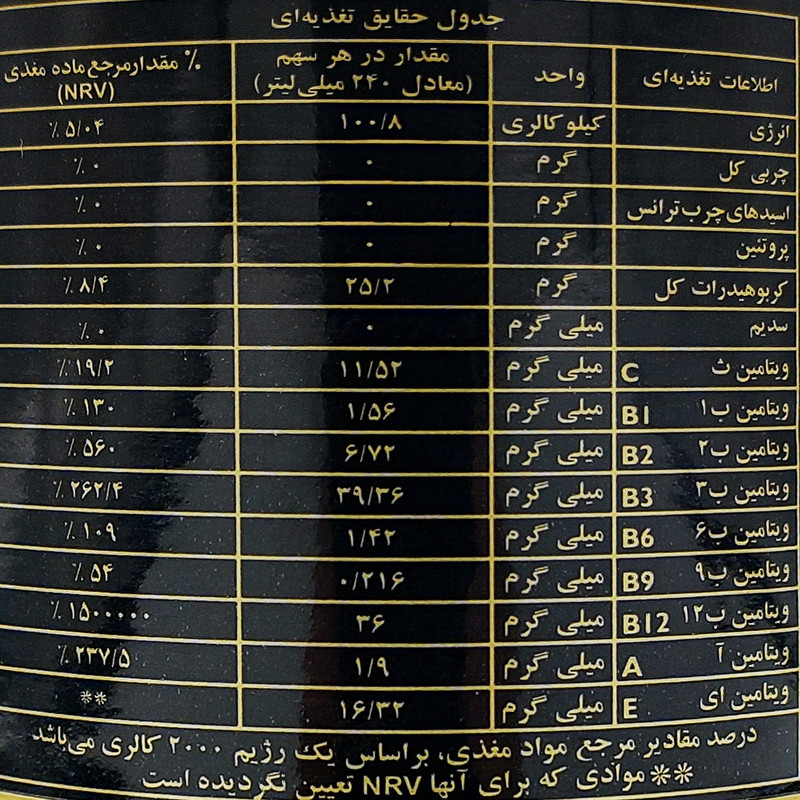 جدول حقایق تغذیه‌ای
اطلاعات تغذیه‌ای واحد مقدار در هر سهم (معادل ۲۴۰ میلی‌لیتر) ٪ مقدار مرجع ماده مغذی (NRV)
انرژی کیلو کالری ۱۰۰/۸ ۵/۰۴ ٪
چربی کل گرم ۰ ۰ ٪
اسیدهای چرب ترانس گرم ۰ ۰ ٪
پروتئین گرم ۰ ۰ ٪
کربوهیدرات کل گرم ۲۵/۲ ۸/۴ ٪
سدیم میلی گرم ۰ ۰ ٪
ویتامین ث C میلی گرم ۱۱/۵۲ ۱۹/۲ ٪
ویتامین ب۱ B1 میلی گرم ۱/۵۶ ۱۳۰ ٪
ویتامین ب۲ B2 میلی گرم ۶/۷۲ ۵۶۰ ٪
ویتامین ب۳ B3 میلی گرم ۳۹/۳۶ ۲۶۲/۴ ٪
ویتامین ب۶ B6 میلی گرم ۱/۴۲ ۱۰۹ ٪
ویتامین ب۹ B9 میلی گرم ۰/۲۱۶ ۵۴ ٪
ویتامین ب۱۲ B12 میلی گرم ۳۶ ۱۵۰۰۰۰۰ ٪
ویتامین آ A میلی گرم ۱/۹ ۲۳۷/۵ ٪
ویتامین ای E میلی گرم ۱۶/۳۲ **
درصد مقادیر مرجع مواد مغذی، بر اساس یک رژیم ۲۰۰۰ کالری می‌باشد
** موادی که برای آنها NRV تعیین نگردیده است